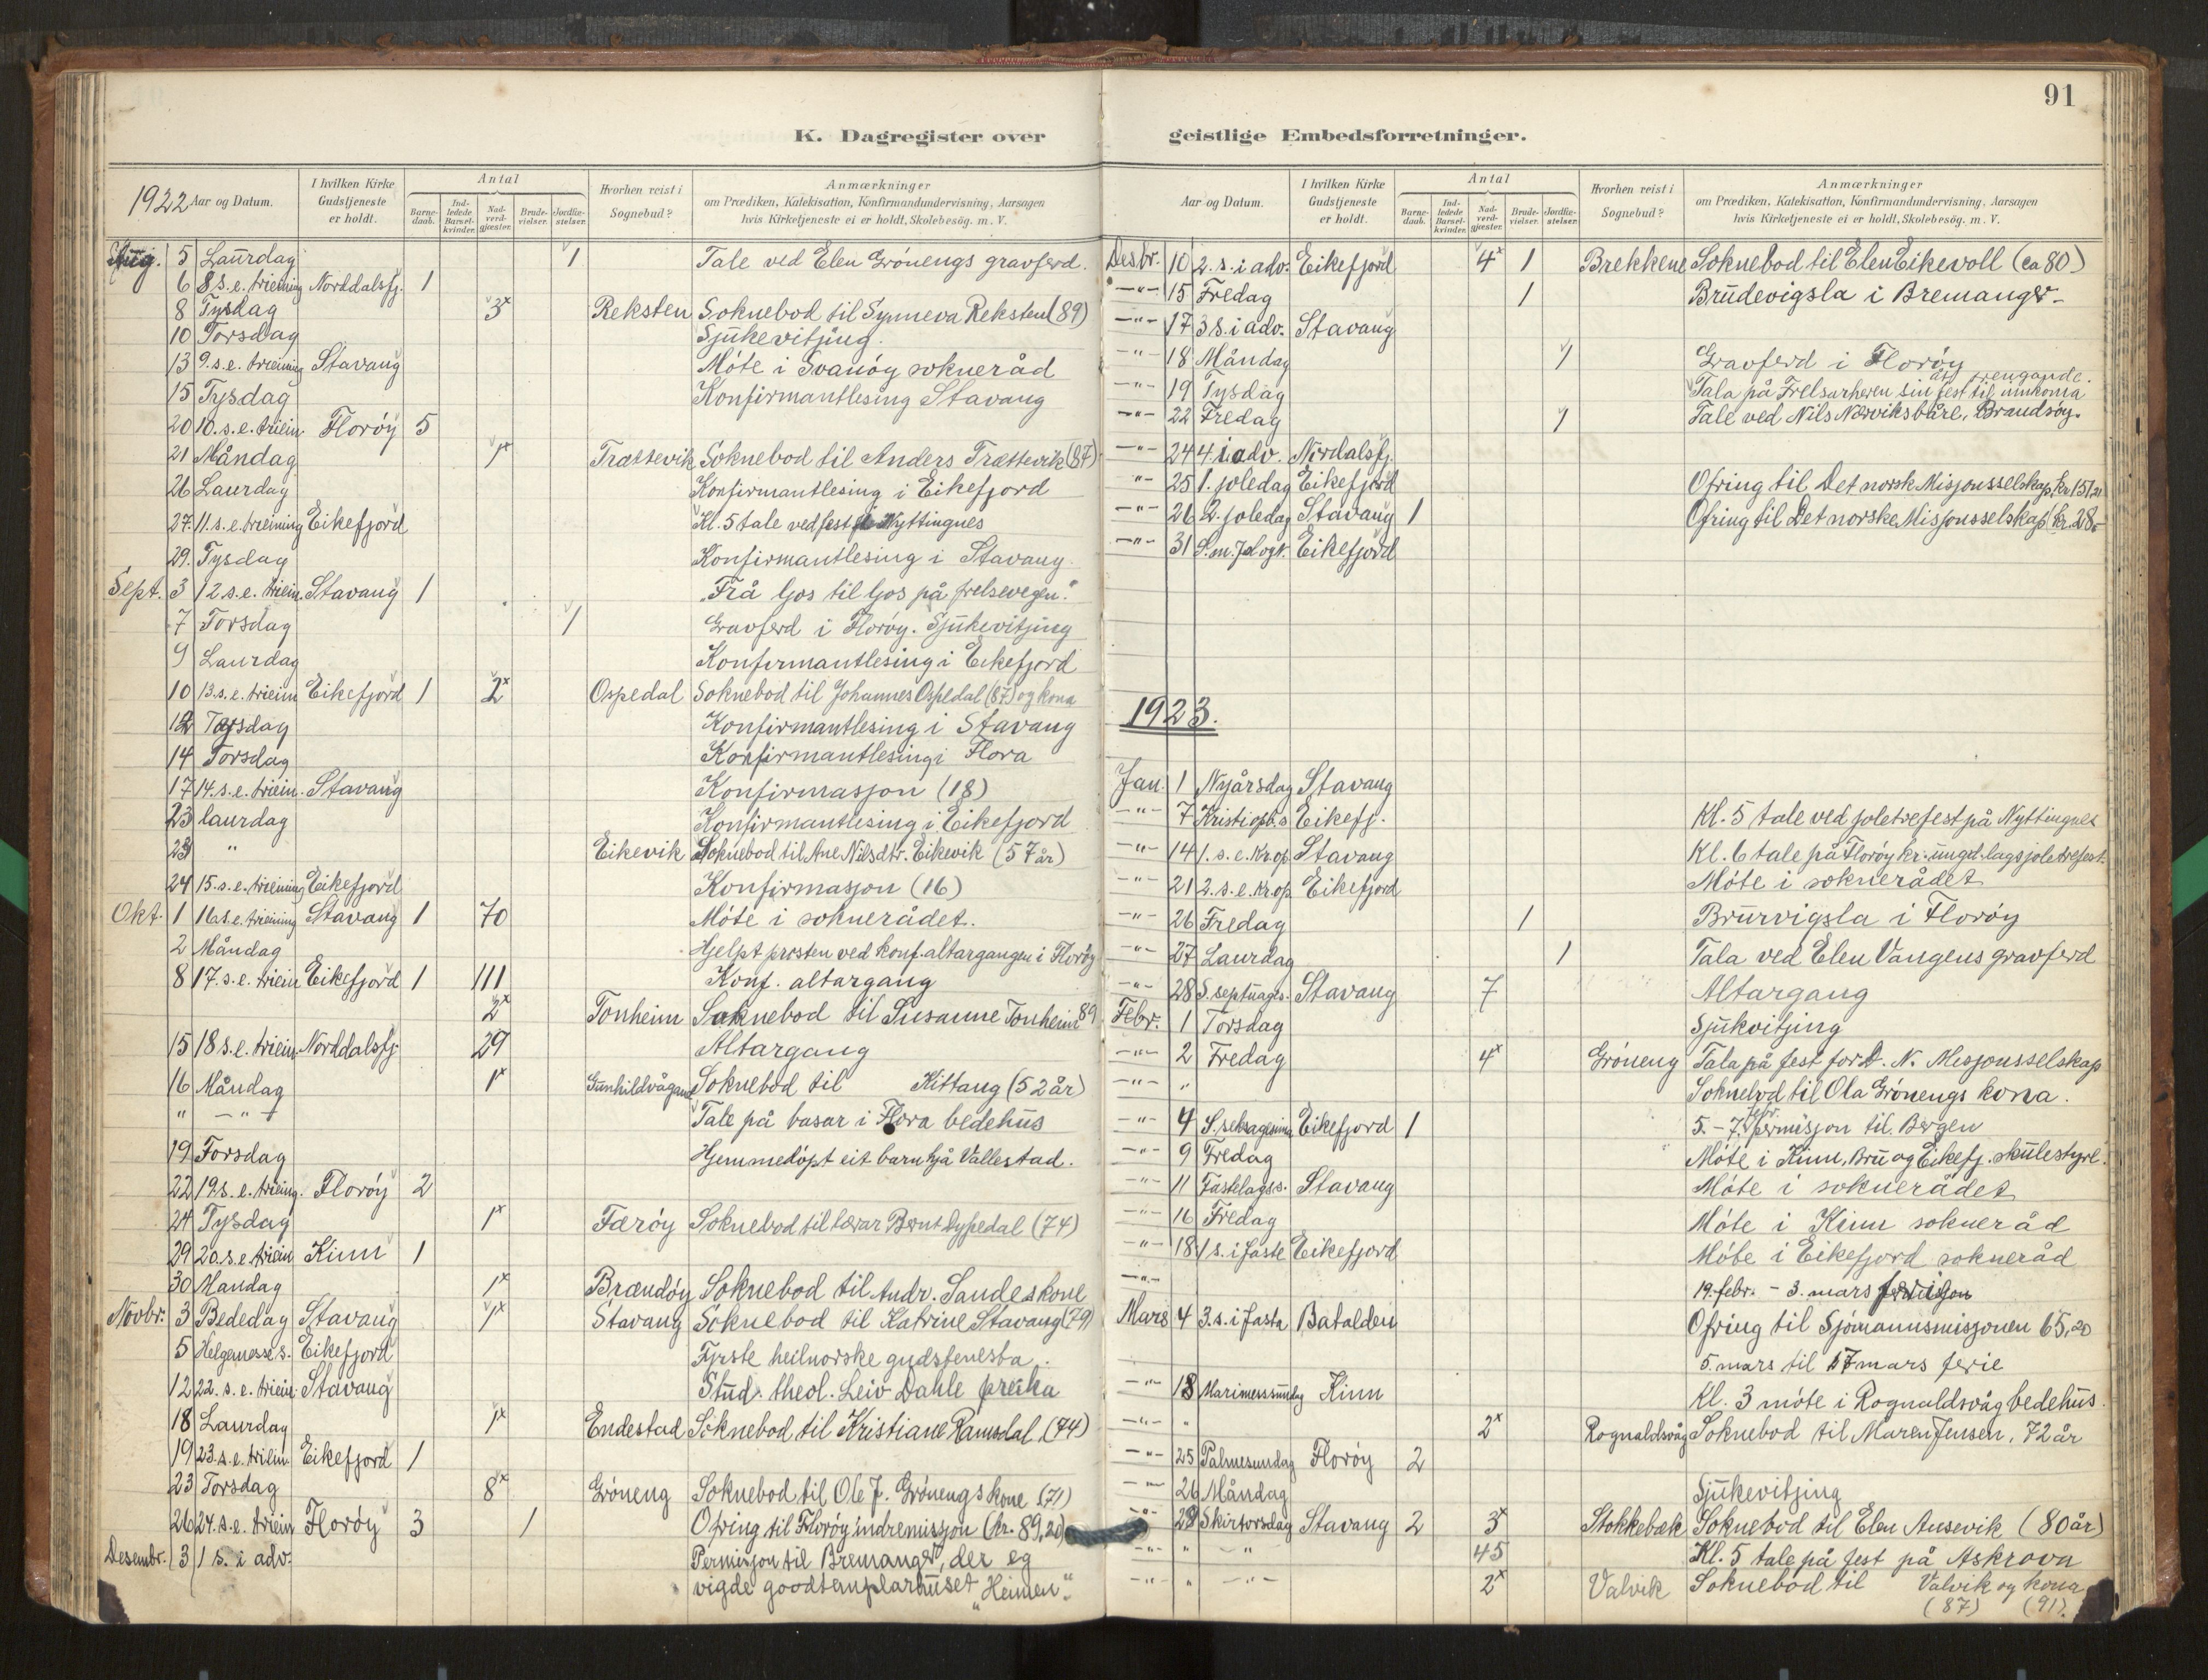 91
K. Dagregister over geistlige Embedsforretninger.
1922 Aar og Datum. I hvilken Kirke Gudstjeneste er holdt. Antal Barnedaab. Indledede Barselkvinder. Nadverdgjæster. Brudevielser. Jordfæstelser. Hvorhen reist i Sognebud? Anmærkninger om Prædiken, Katekisation, Konfirmandundervisning, Aarsagen hvis Kirketjeneste ei er holdt, Skolebesøg. m. V.
Aug. 5 Laurdag 1 Tale ved Elen Grönengs gravferd.
6 8 s.e. trieining Norddalsfj. 1
8 Tysdag 3x Reksten Soknebod til Synneva Reksten (89)
10 Torsdag Sjukevitjing.
13 9.s.e. trieining Stavang Möte i Svanöy sokneråd
15 Tysdag Konfirmantlesing Stavang
20 10.s.e. triein. Floröy 5
21 Måndag 1x Trættevik Soknebod til Anders Trættevik (87)
26 Laurdag Konfirmantlesing i Eikefjord
27. 11.s.e. trieining Eikefjord Kl. 5 tale ved fest på Nyttingnes
29. Tysdag Konfirmantlesing i Stavang.
Sept. 3 12 s.e. triein. Stavang 1 "Frå ljos til ljos på frelsevegen."
7 Torsdag 1 Gravferd i Floröy. Sjukevitjing
9 Laurdag Konfirmantlesing i Eikefjord
10 13.s.e. triein Eikefjord 1 2x Ospedal Soknebod til Johannes Ospedal (87) og kona
12 Tysdag Konfirmantlesing i Stavang
14 Torsdag Konfirmantlesing i Flora
17 14.s.e. triein. Stavang Konfirmasjon (18)
23 laurdag Konfirmantlesing i Eikefjord
23 " Eikevik Soknebod til Ane Nilsdtr. Eikevik (57 år)
24 15.s.e. trieining Eikefjord Konfirmasjon (16)
Okt. 1 16 s.e. trieining Stavang 1 70 Möte i soknerådet.
2 Måndag Hjelpt prosten ved konf. altargangen i Floröy
8 17.s.e. triein Eikefjord 1 111 Konf. altargang
2x Tonheim Soknebod til Susanne Tonheim 89
15 18 s.e. triein. Norddalsfj. 29 Altargang
16 Måndag 1x Gunhildvågane Soknebod til Kittang (52 år)
" — " — Tale på basar i Flora bedehus
19 Torsdag Hjemmedöpt eit barn hjå Vallestad.
22 19.s.e. trieing. Floröy 2
24 Tysdag 1x Færöy Soknebod til lærar Bernt Dypedal (74)
29 20.s.e. triein Kinn 1
30 Mandag 1x Brandöy Soknebod til Andr. Sandes kone
Novbr. 3 Bededag Stavang 1x Stavang Soknebod til Katrine Stavang (79)
5 Helgemesse s. Eikefjord Fyrste heilnorske gudstenesta.
12 22. s.e. triein. Stavang Stud. theol. Leiv Dahle preika
18 Laurdag 1x Endestad Soknebod til Kristiane Ramsdal (74)
19 23.s.e. triein. Eikefjord 1
23 Torsdag 8x Gröneng Soknebod til Ole J. Grönengs kone (71)
26 24.s.e. triein Floröy 3 1 Ofring til Floröy indremisjon (kr. 89,20)
Desembr. 3 1 s. i adv. Permisjon til Bremanger, der eg
vigde goodtemplarhuset "Heimen".
Aar og Datum. I hvilken Kirke Gudstjeneste er holdt. Antal Barnedaab. Indledede Barselkvinder. Nadverdgjæster. Brudevielser. Jordfæstelser. Hvorhen reist i Sognebud? Anmærkninger om Prædiken, Katekisation, Konfirmandundervisning, Aarsagen hvis Kirketjeneste ei er holdt, Skolebesøg. m. V.
Desbr. 10 2. s. i adv. Eikefjord 4x 1 Brekkene Soknebod til Elen Eikevoll (ca 80)
—"— 15 Fredag 1 Brudevigsla i Bremanger
—"— 17 3 s. i adv. Stavang
—"— 18 Måndag 1 Gravferd i Floröy
—"— 19 Tysdag Tala på Frelsarheren sin fest til innkoma åt trengande.
—"— 22 Fredag 1 Tale ved Nils Nærviks båre, Brandsöy.
—"— 24 4. i adv. Nordalsfj.
—"— 25 1. joledag Eikefjord Ofring til Det norsk Misjonsselskap, kr 151,21
—"— 26 2. joledag Stavang 1 Ofring til Det norske Misjonsselskap kr. 28,-
—"— 31 S.m. Jol og N. Eikefjord
1923.
Jan. 1 Nyårsdag Stavang
—"— 7 Kristi opb.s Eikefj. Kl. 5 tale ved joletrefest på Nyttingnes
—"— 14 1. s.e. Kr.op. Stavang Kl. 6 tale på Floröy kr. ungd.lags joletrefest.
—"— 21 2. s.e. kr.op Eikefjord Möte i soknerådet
—"— 26 Fredag 1 Brurvigsla i Floröy
—"— 27 Laurdag 1 Tala ved Elen Vangens gravferd
—"— 28 S. septuages. Stavang 7 Altargang
Febr. 1 Torsdag Sjukvitjing
—"— 2 Fredag 4x Gröneng Tala på fest for D. N. Misjonsselskap
—"— " Soknebod til Ola Grönengs kona.
—"— 4 S. seksagesima Eikefjord 1 5.–7. febr. permisjon til Bergen
—"— 9 Fredag Möte i Kinn, Bru og Eikefj. skulestyre.
—"— 11 Fastelags s. Stavang Möte i soknerådet
—"— 16 Fredag Möte i Kinn sokneråd
—"— 18 1 s. i faste Eikefjord Möte i Eikefjord sokneråd
—"— 19. febr. – 3. mars
Mars 4 3.s. i fasta Batalden Ofring til Sjömannsmisjonen 65,20
5. mars til 17 mars ferie
—"— 18 Marimesssundag Kinn Kl. 3 möte i Rognaldsvåg bedehus.
—"— " 2x Rognaldsvåg Soknebod til Maren Jensen, 72 år
—"— 25 Palmesundag Floröy 2
—"— 26 Måndag Sjukevitjing
—"— 29 Skirtorsdag Stavang 2 3x Stokkebæk Soknebod til Elen Ansevik (80 år)
—"— " —"— 45 Kl. 5 tale på fest på Askrova
—"— " —"— 2x Valvik Soknebod til Valvik og kona
(87) (91).